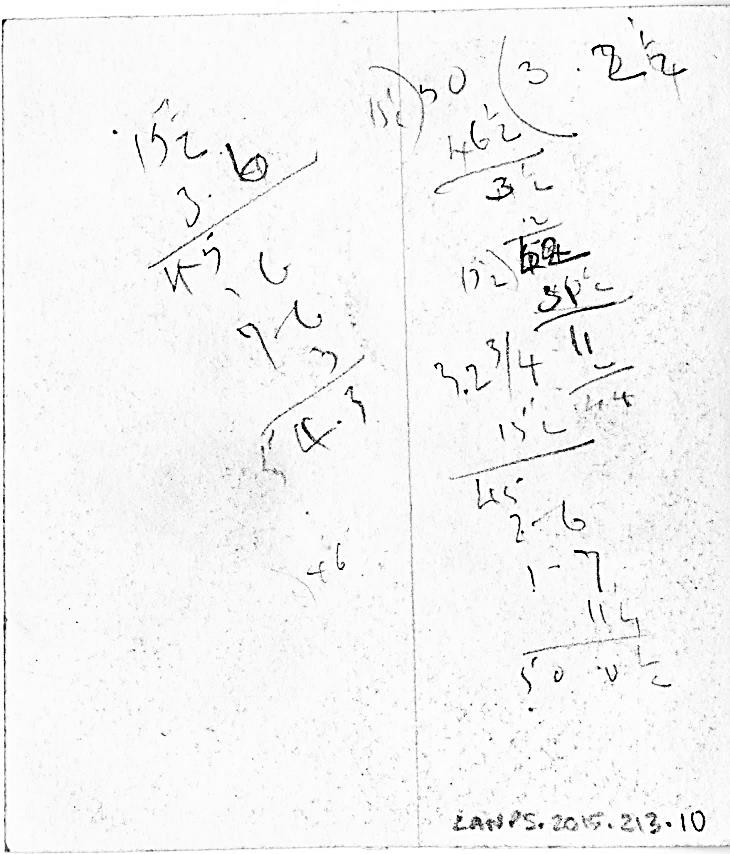 15½
3.6
45.6
7.6
3
54.3
46
15½)50(3.2½
46½
3½
12
15½)
11
3.2¾
44
15½
45
2-6
1-7
11¼
50.0½
LANPS.2015.213.10